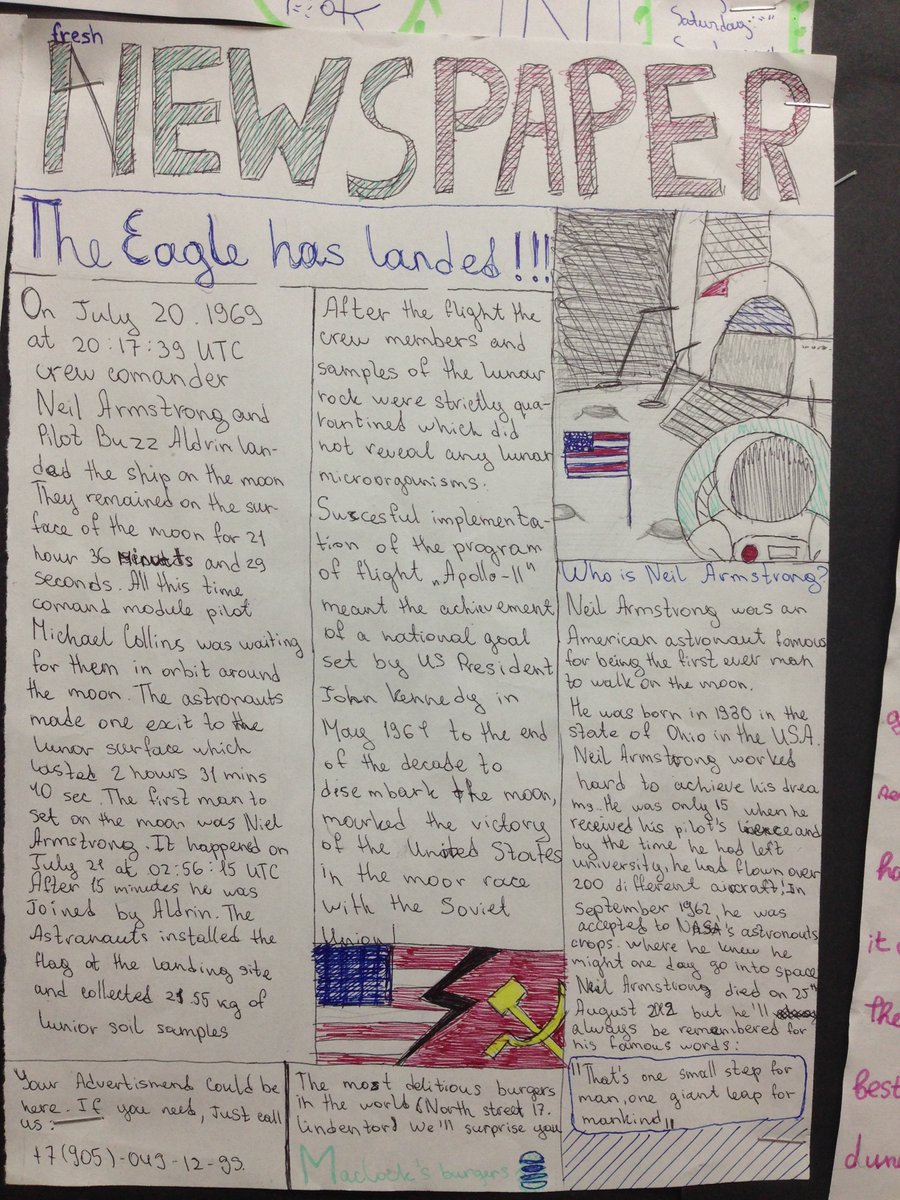 Saturday
fresh
NEWSPAPER
The Eagle has landed!!!
On July 20.1969
at 20:17:39 UTC
crew comander
Neil Armstrong and
Pilot Buzz Aldrin lan-
ded the ship on the moon
They remained on the sur-
face of the moon for 21
hour 36 minuts and 29
seconds. All this time
comand module pilot
Michael Collins was waiting
for them in orbit around
the moon. The astronauts
made one exit to the
lunar surface which
lasted 2 hours 31 mins
40 sec. The first man to
set on the moon was Niel
Armstrong. It happened on
July 21 at 02:56:15 UTC
After 15 minutes he was
Joined by Aldrin. The
Astranauts installed the
flag at the landing site
and collected 21.55 kg of
lunior soil samples
After the flight the
crew members and
samples of the lunar
rock were strictly qua-
rountined which did
not reveal any lunar
microorganisms.
Succesful implementa-
tion of the program
of flight „Apollo-11"
meant the achivement
of a national goal
set by US President
John Kennedy in
May 1961 to the end
of the decade to
disembark the moon,
mourked the victory
of the United States
in the moor race
with the Soviet
Union!
Who is Neil Armstrong?
Neil Armstrong was an
American astronaut famous
for being the first ever man
to walk on the moon.
He was born in 1930 in the
state of Ohio in the USA.
Neil Armstrong worked
hard to achieve his drea
ms. He was only 15 when he
received his pilot's and
by the time he had left
university, he had flown over
200 different aircraft! In
September 1962, he was
accepted to NASA's astronauts
crops. where he knew he
might one day go into space
Neil Armstrong died on 25th
August 2012 but he'll
always be remembered for
his famous words:
"That's one small step for
man, one giant leap for
mankind"
Your Advertismend could be
here. If you need, just call
us:
+7(905)-049-12-99.
The most delitious burgers
in the world (North street 17.
Lindentor) We'll surprise you
Maclock's burgers
it
the
best